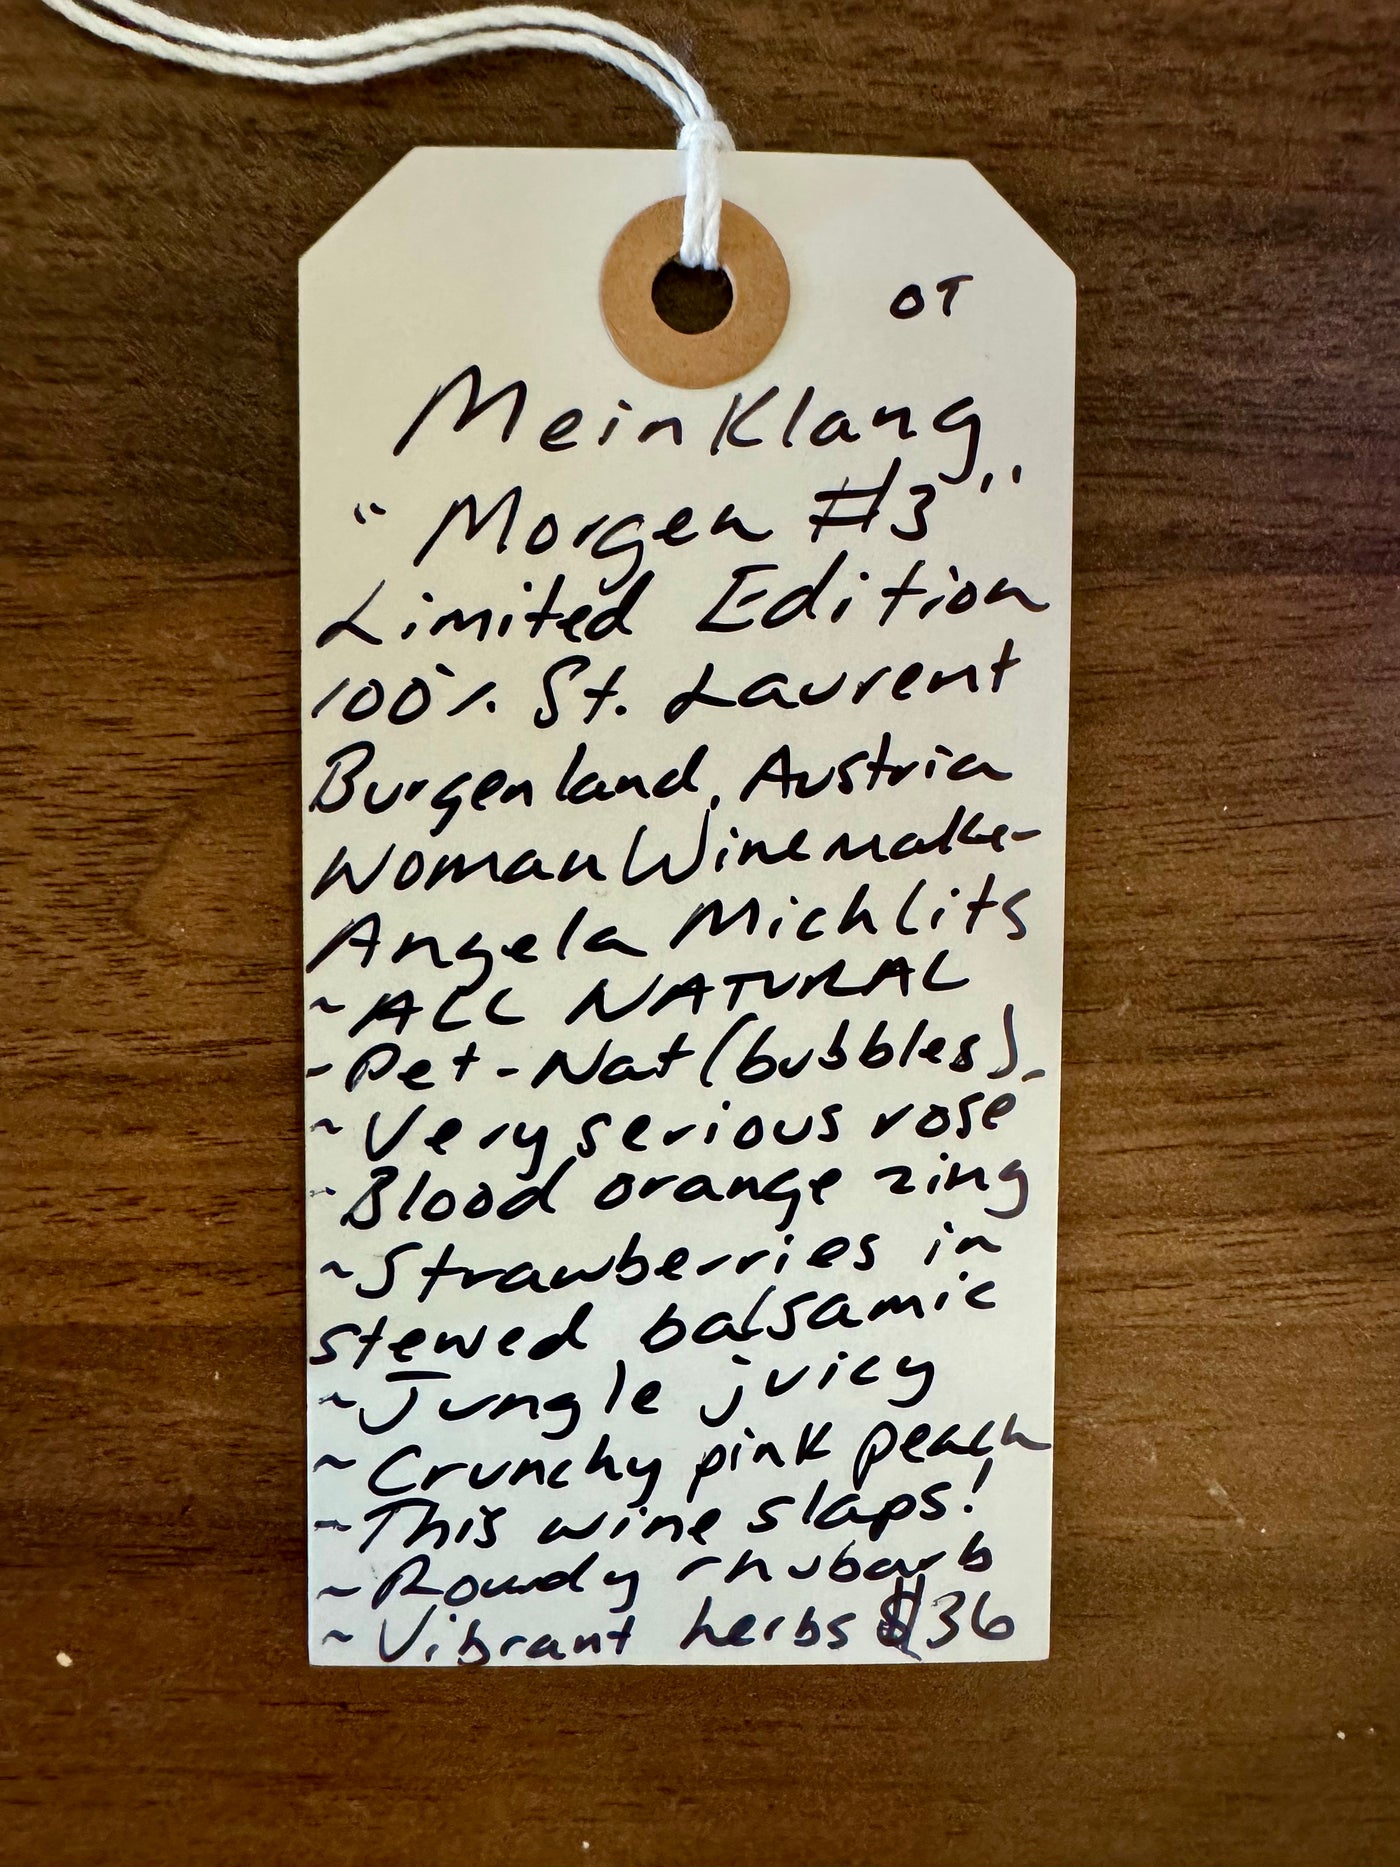 OT
MeinKlang
"Morgen #3"
Limited Edition
100% St. Laurent
Burgenland, Austria
Woman Winemaker
Angela Michlits
~ALL NATURAL
-Pet-Nat (bubbles)
~Very serious rosé
~Blood orange zing
~Strawberries in
stewed balsamic
~Jungle juicy
~Crunchy pink peach
~This wine slaps!
~Rowdy rhubarb
~Vibrant herbs $36